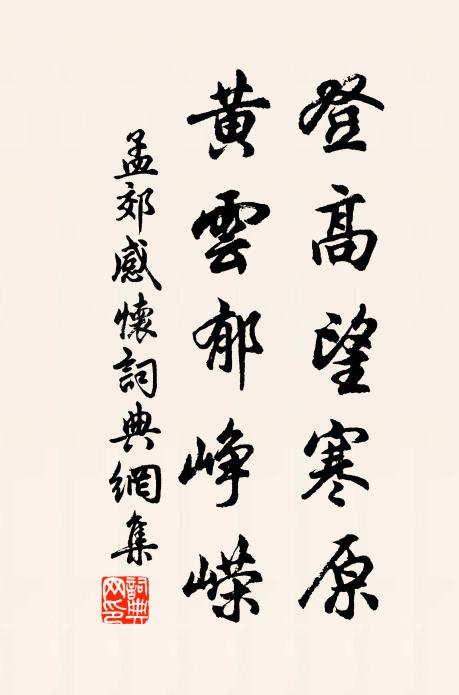 登高望寒原
黄雲郁峥嶸
孟郊感懷詞典網集
詞典网印